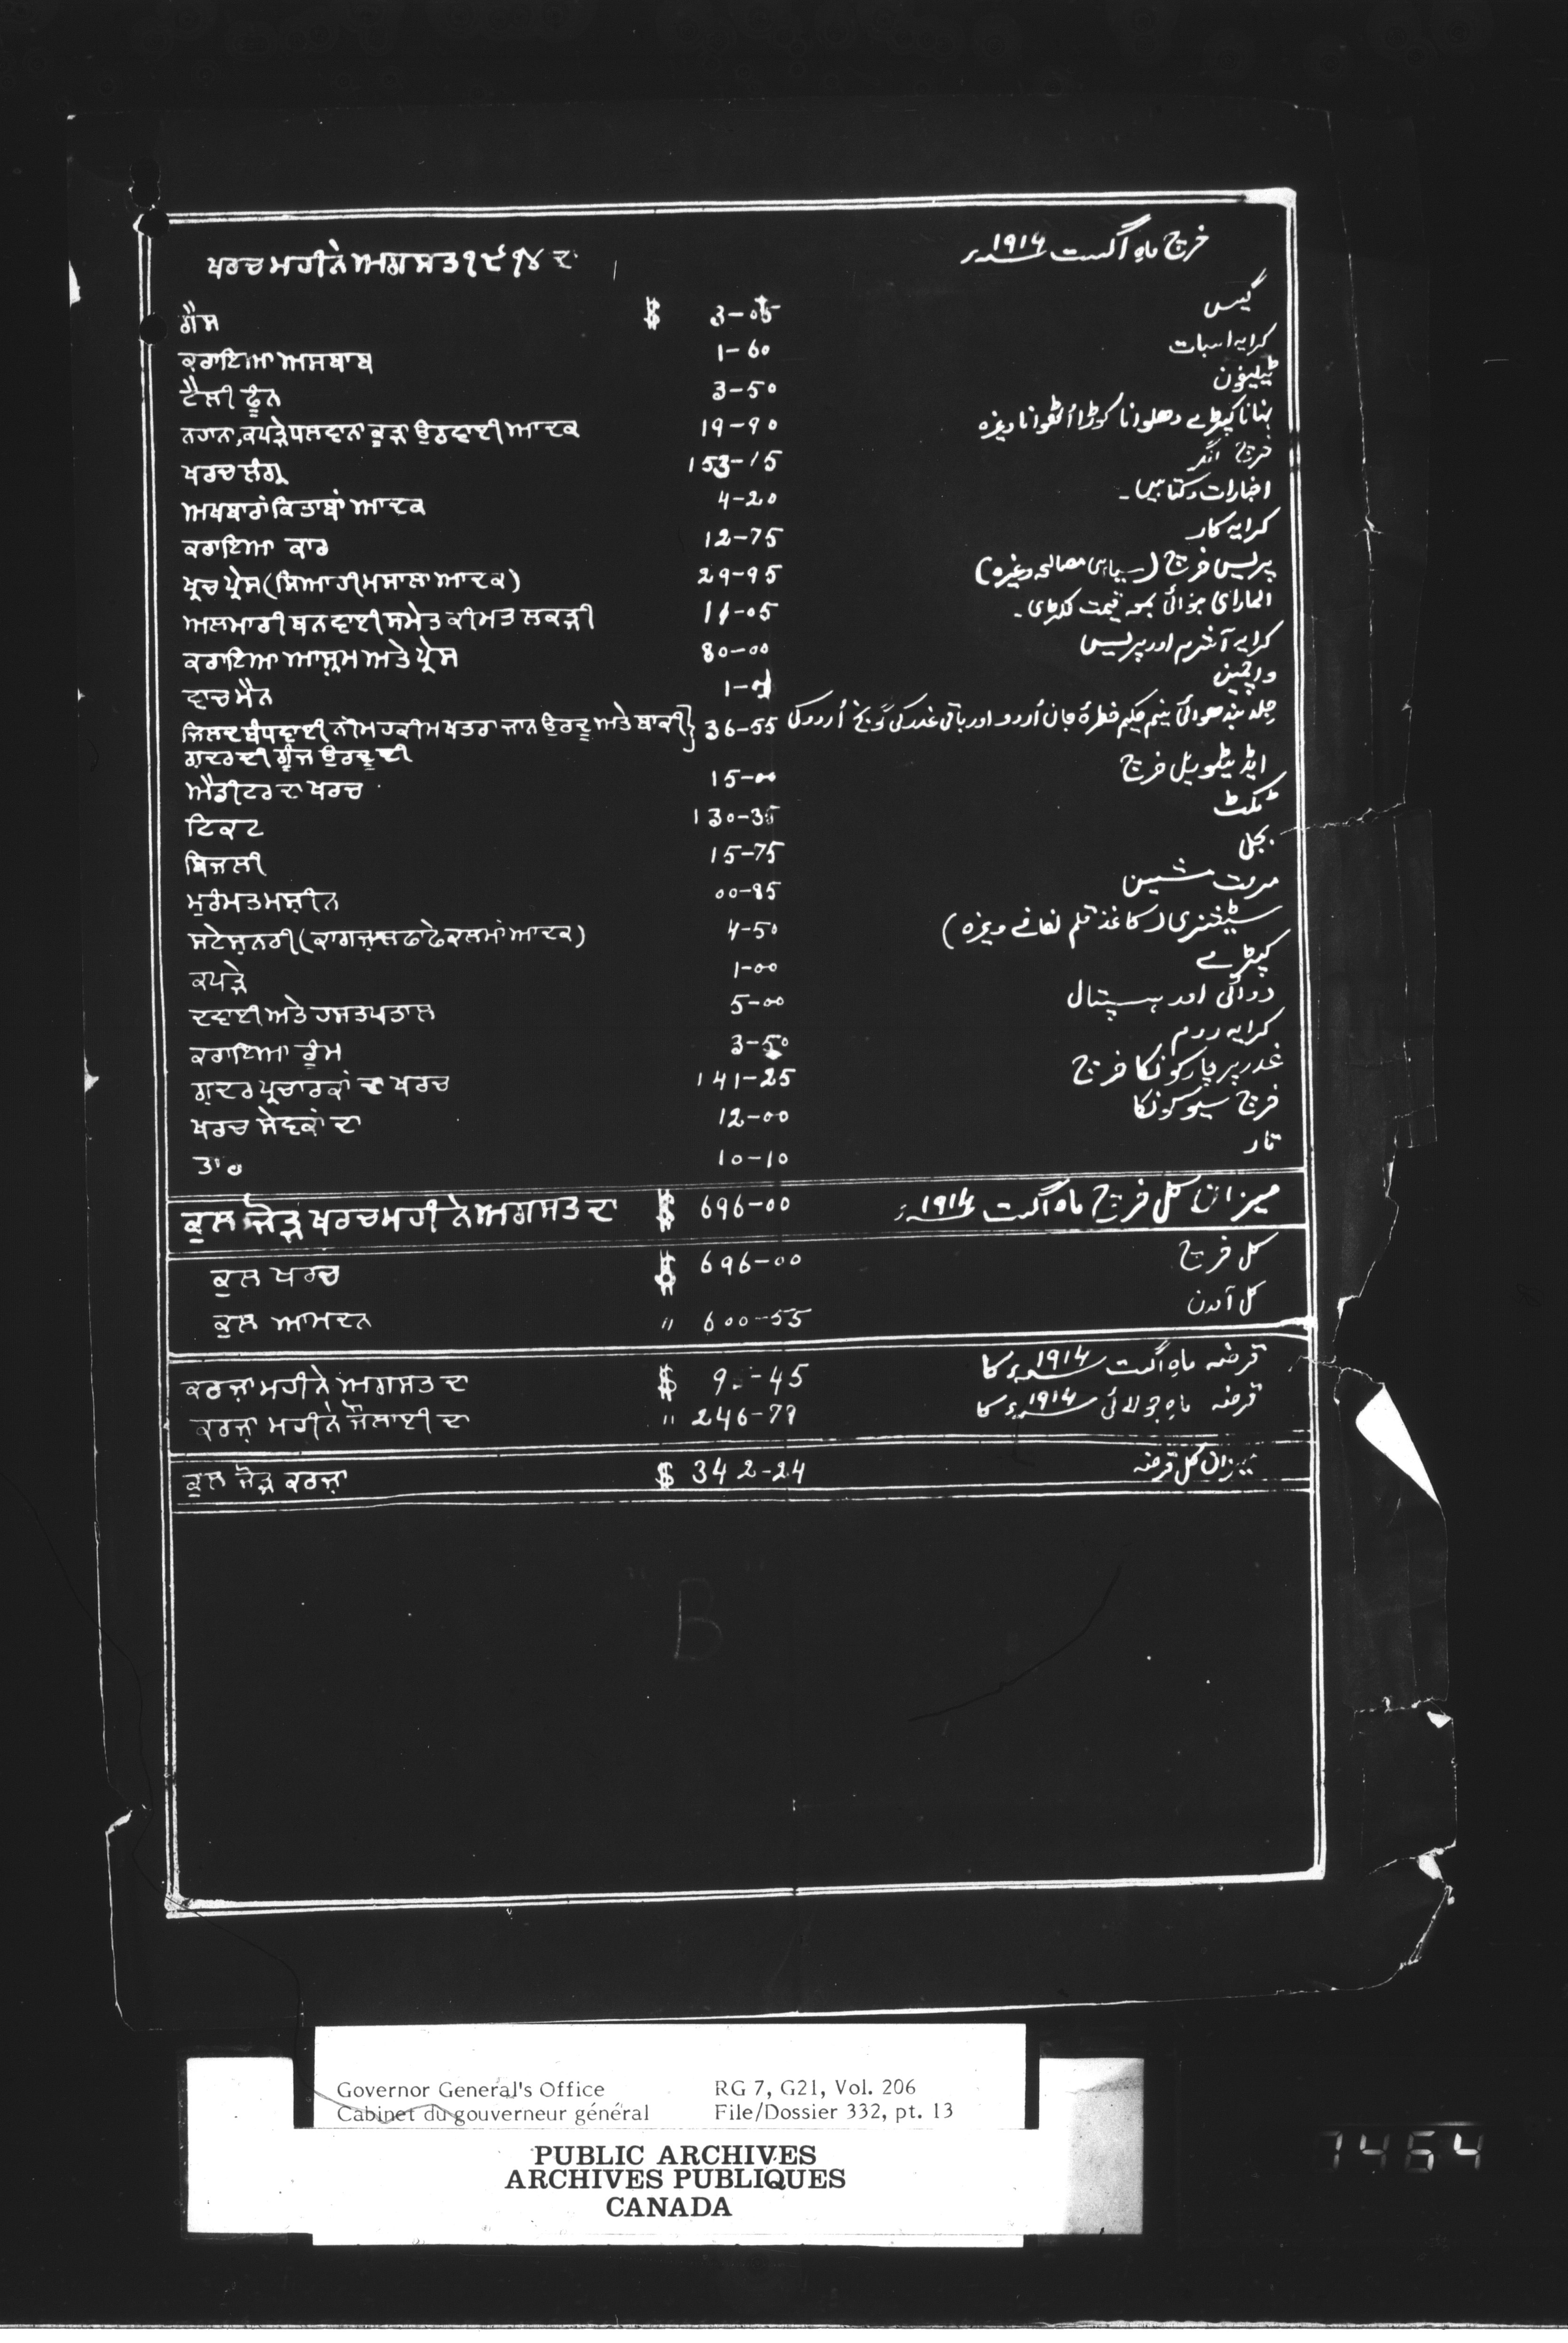 ਖਰਚ ਮਹੀਨੇ ਅਗਸਤ ੧੯੧੪ ਦਾ خرچ ماہ اگست ۱۹۱۴ء
ਗੈਸ $ 3-05 گیس
ਕਰਾਇਆ ਅਸਬਾਬ 1-60 کرایہ اسبات
ਟੈਲੀਫੂੰਨ 3-50 ٹیلیفون
ਨਹਾਨ, ਕਪੜੇ ਧਲਵਾਨਾ ਕੂੜਾ ਉਠਵਾਈ ਆਦਕ 19-90 نہانا کپڑے دھلوانا کوڑا اُٹھوانا وغیرہ
ਖਰਚ ਲੰਗ੍ਰ 153-15 خرچ لنگر
ਅਖਬਾਰਾਂ ਕਿਤਾਬਾਂ ਆਦਕ 4-20 اخبارات و کتابیں۔
ਕਰਾਇਆ ਕਾਰ 12-75 کرایہ کار
ਖ੍ਰਚ ਪ੍ਰੇਸ (ਸਿਆਹੀ ਮਸਾਲਾ ਆਦਕ) 29-95 پریس خرچ (سیاہی مصالحہ وغیرہ)
ਅਲਮਾਰੀ ਬਨਵਾਈ ਸਮੇਤ ਕੀਮਤ ਲਕੜੀ 11-05 الماری بنوائی بمعہ قیمت لکڑی۔
ਕਰਾਇਆ ਆਸ਼੍ਰਮ ਅਤੇ ਪ੍ਰੇਸ 80-00 کرایہ آشرم اور پریس
ਵਾਚ ਮੈਨ 1- واچمین
ਜਿਲਦ ਬੰਧਵਾਈ ਨੀਮ ਹਕੀਮ ਖਤਰਾ ਜਾਨ ਉਰਦੂ ਅਤੇ ਬਾਕੀ} 36-55 جلد بندھوائی نیم حکیم خطرۂ جان اُردو اور باقی غدر کی گونج اُردو کی
ਗ਼ਦਰ ਦੀ ਗੂੰਜ ਉਰਦੂ ਦੀ
ਐਡੀਟਰ ਦਾ ਖਰਚ 15-00 ایڈیٹوریل خرچ
ਟਿਕਟ 130-35 ٹکٹ
ਬਿਜਲੀ 15-75 بجلی
ਮੁਰੰਮਤ ਮਸ਼ੀਨ 00-85 مرمت مشین
ਸਟੇਸ਼ਨਰੀ (ਕਾਗਜ਼ ਲਫਾਫੇ ਕਲਮਾਂ ਆਦਕ) 4-50 سٹیشنری (کاغذ قلم لفافے وغیرہ)
ਕਪੜੇ 1-00 کپڑے
ਦਵਾਈ ਅਤੇ ਹਸਤਪਤਾਲ 5-00 دوائی اور ہسپتال
ਕਰਾਇਆ ਰੂੰਮ 3-50 کرایہ روم
ਗ਼ਦਰ ਪ੍ਰਚਾਰਕਾਂ ਦਾ ਖਰਚ 141-25 غدر پرچارکونکا خرچ
ਖਰਚ ਸੇਵਕਾਂ ਦਾ 12-00 خرچ سیوکونکا
ਤਾਰ 10-10 تار
ਕੁਲ ਜੋੜ ਖਰਚ ਮਹੀਨੇ ਅਗਸਤ ਦਾ $ 696-00 میزان کل خرچ ماہ اگست ۱۹۱۴ء
ਕੁਲ ਖਰਚ $ 696-00 کل خرچ
ਕੁਲ ਆਮਦਨ " 600-55 کل آمدن
ਕਰਜ਼ਾ ਮਹੀਨੇ ਅਗਸਤ ਦਾ $ 9 -45 قرضہ ماہ اگست ۱۹۱۴ء کا
ਕਰਜ਼ਾ ਮਹੀਨੇ ਜੌਲਾਈ ਦਾ " 246-79 قرضہ ماہ جولائی ۱۹۱۴ء کا
ਕੁਲ ਜੋੜ ਕਰਜ਼ਾ $ 342-24 میزان کل قرضہ
"B"
Governor General's Office RG 7, G21, Vol. 206
Cabinet du gouverneur général File/Dossier 332, pt. 13
PUBLIC ARCHIVES
ARCHIVES PUBLIQUES
CANADA
7464